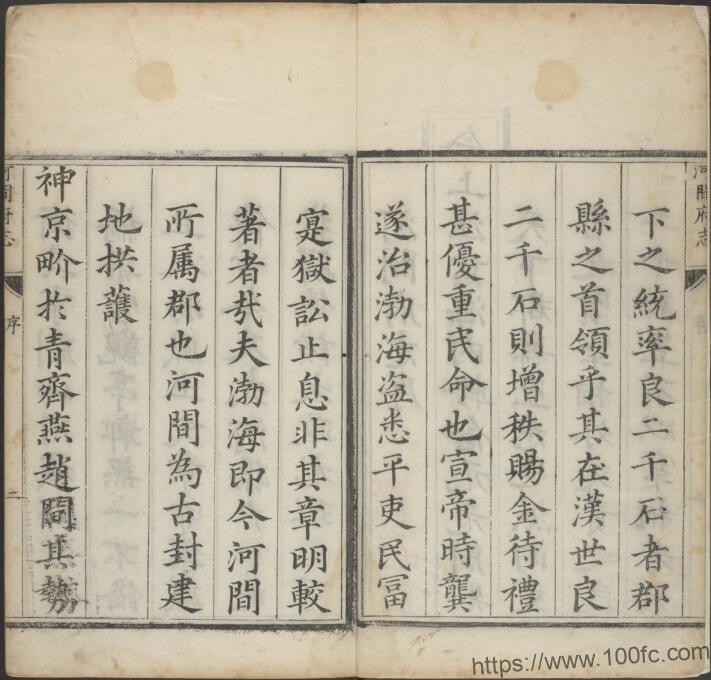 河間府志
下之統率良二千石者郡
縣之首領乎其在漢世良
二千石則增秩賜金待禮
甚優重民命也宣帝時龔
遂治渤海盗悉平吏民冨
寔獄訟止息非其章明較
著者㢤夫渤海即今河間
所属郡也河間為古封建
地拱護
神京畍扵青齊燕趙間其勢
河間府志
序
二
https://www.100fc.com